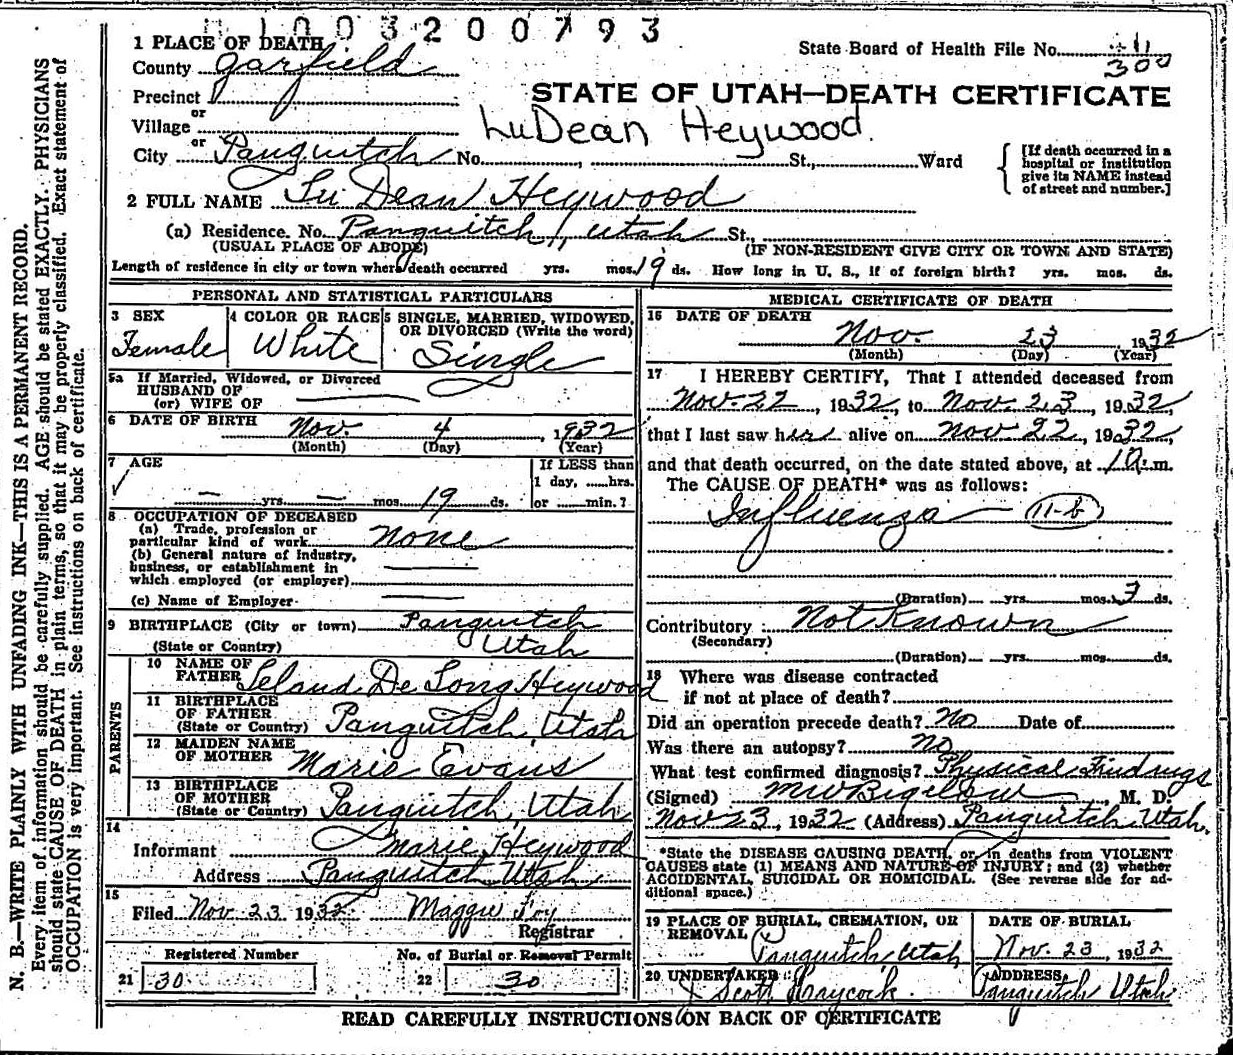 1003200793
1 PLACE OF DEATH
State Board of Health File No.
300
County Garfield
Precinct
STATE OF UTAH—DEATH CERTIFICATE
or
Village
LuDean Heywood
or
City Panguitch No. St., Ward
[If death occurred in a
hospital or institution
give its NAME instead
of street and number.]
2 FULL NAME Lu Dean Heywood
(a) Residence. No. Panguitch, Utah St.,
(USUAL PLACE OF ABODE) (IF NON-RESIDENT GIVE CITY OR TOWN AND STATE)
Length of residence in city or town where death occurred yrs. mos. 19 ds. How long in U. S., if of foreign birth? yrs. mos. ds.
PERSONAL AND STATISTICAL PARTICULARS
3 SEX
Female
4 COLOR OR RACE
White
5 SINGLE, MARRIED, WIDOWED,
OR DIVORCED (Write the word)
Single
5a If Married, Widowed, or Divorced
HUSBAND OF
(or) WIFE OF
6 DATE OF BIRTH Nov. 4, 1932
(Month) (Day) (Year)
7 AGE
If LESS than
1 day, ......hrs.
yrs. mos. 19 ds. or ...... min.?
8 OCCUPATION OF DECEASED
(a) Trade, profession or
particular kind of work None
(b) General nature of industry,
business, or establishment in
which employed (or employer)
(c) Name of Employer
9 BIRTHPLACE (City or town) Panguitch
(State or Country) Utah
PARENTS
10 NAME OF
FATHER Leland De Long Heywood
11 BIRTHPLACE
OF FATHER
(State or Country) Panguitch, Utah
12 MAIDEN NAME
OF MOTHER Marie Evans
13 BIRTHPLACE
OF MOTHER
(State or Country) Panguitch, Utah
14
Informant Marie Heywood
Address Panguitch Utah
15
Filed Nov 23 1932 Maggie Foy
Registrar
Registered Number No. of Burial or Removal Permit
21 30 22 30
MEDICAL CERTIFICATE OF DEATH
16 DATE OF DEATH
Nov. 23 1932
(Month) (Day) (Year)
17 I HEREBY CERTIFY, That I attended deceased from
Nov. 22, 1932, to Nov. 23, 1932,
that I last saw her alive on Nov 22, 1932,
and that death occurred, on the date stated above, at 1 a.m.
The CAUSE OF DEATH* was as follows:
Influenza 11-b
(Duration) yrs. mos. 3 ds.
Contributory : Not Known
(Secondary)
(Duration) yrs. mos. ds.
18 Where was disease contracted
if not at place of death?
Did an operation precede death? No Date of
Was there an autopsy? No
What test confirmed diagnosis? Physical Findings
(Signed) M W Bigelow, M. D.
Nov 23, 1932 (Address) Panguitch Utah.
*State the DISEASE CAUSING DEATH, or, in deaths from VIOLENT
CAUSES state (1) MEANS AND NATURE OF INJURY; and (2) whether
ACCIDENTAL, SUICIDAL OR HOMICIDAL. (See reverse side for ad-
ditional space.)
19 PLACE OF BURIAL, CREMATION, OR
REMOVAL Panguitch, Utah
DATE OF BURIAL
Nov. 23, 1932
20 UNDERTAKER
Scott Haycock
ADDRESS
Panguitch Utah
READ CAREFULLY INSTRUCTIONS ON BACK OF CERTIFICATE
N. B.—WRITE PLAINLY WITH UNFADING INK—THIS IS A PERMANENT RECORD.
Every item of information should be carefully supplied. AGE should be stated EXACTLY. PHYSICIANS
should state CAUSE OF DEATH in plain terms, so that it may be properly classified. Exact statement of
OCCUPATION is very important. See instructions on back of certificate.